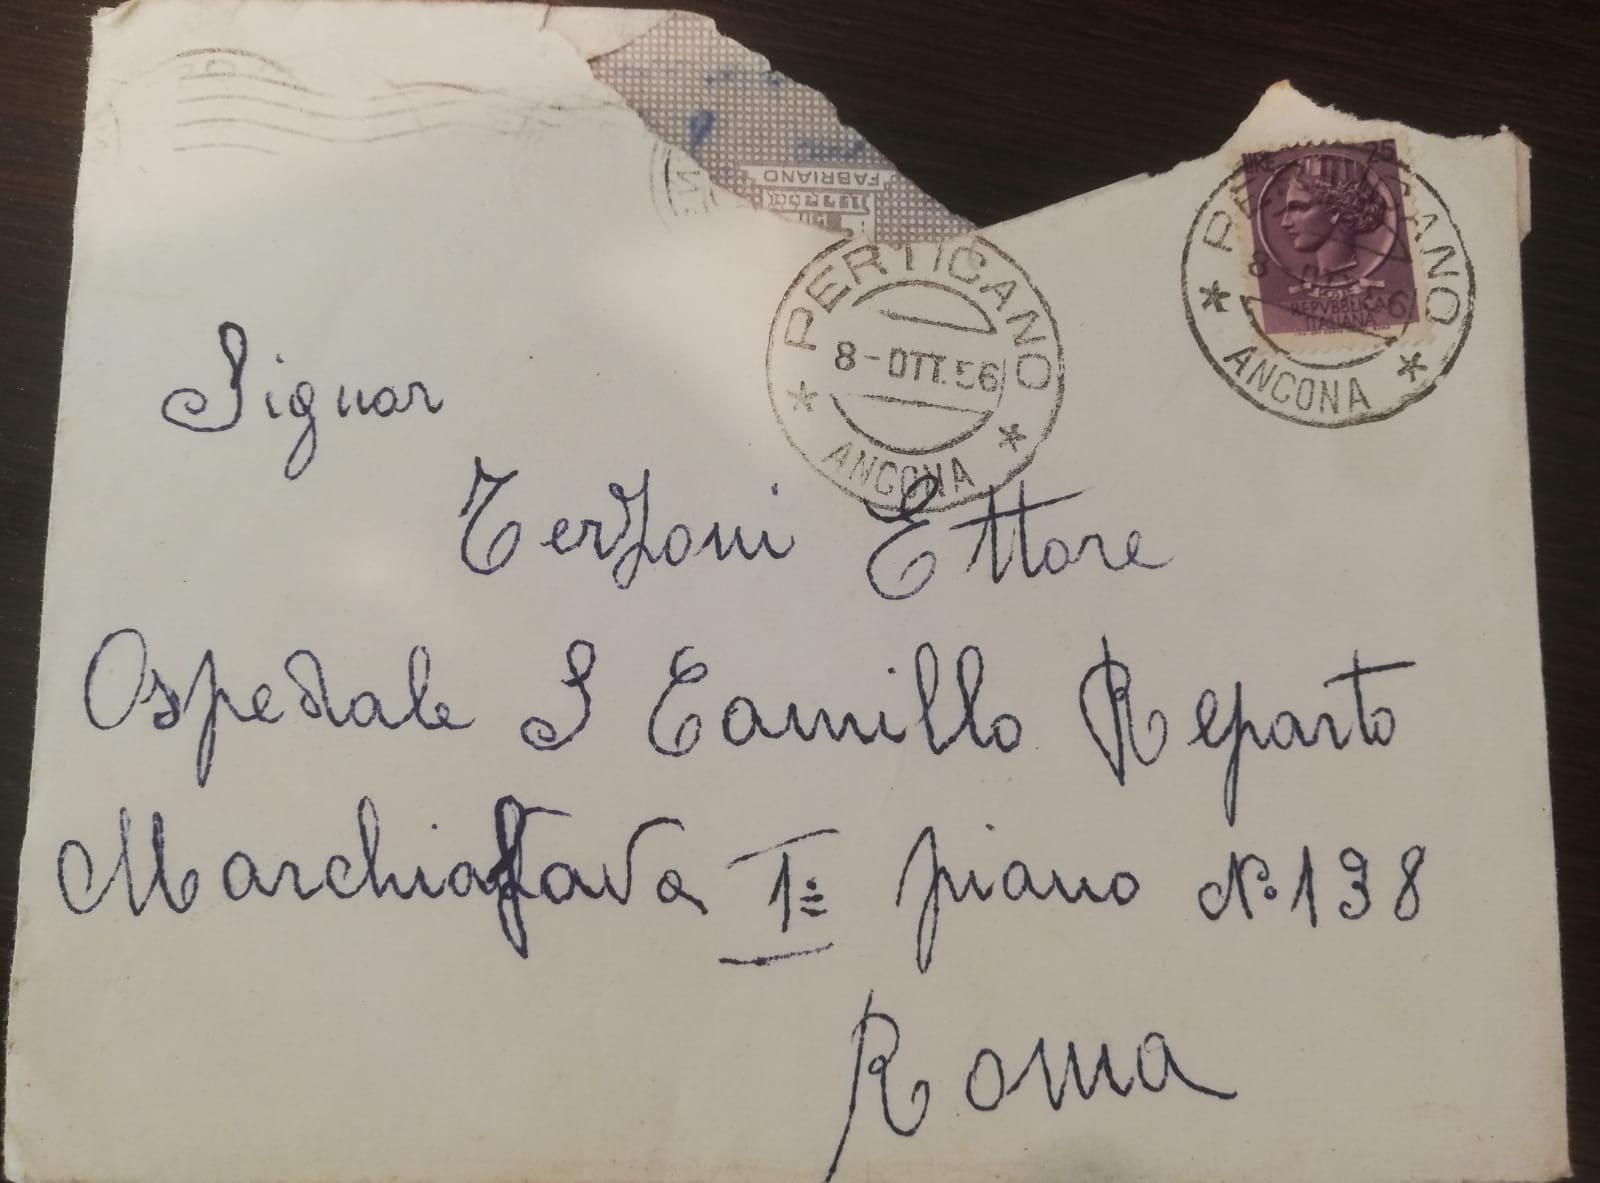 FABRIANO
LIRE 25
POSTE
REPVBBLICA
ITALIANA
PERTICANO
8-OTT.56
ANCONA
PERTICANO
8-OTT.56
ANCONA
Signor
Terzoni Ettore
Ospedale S Camillo Reparto
Marchiafava 1= piano N° 138
Roma